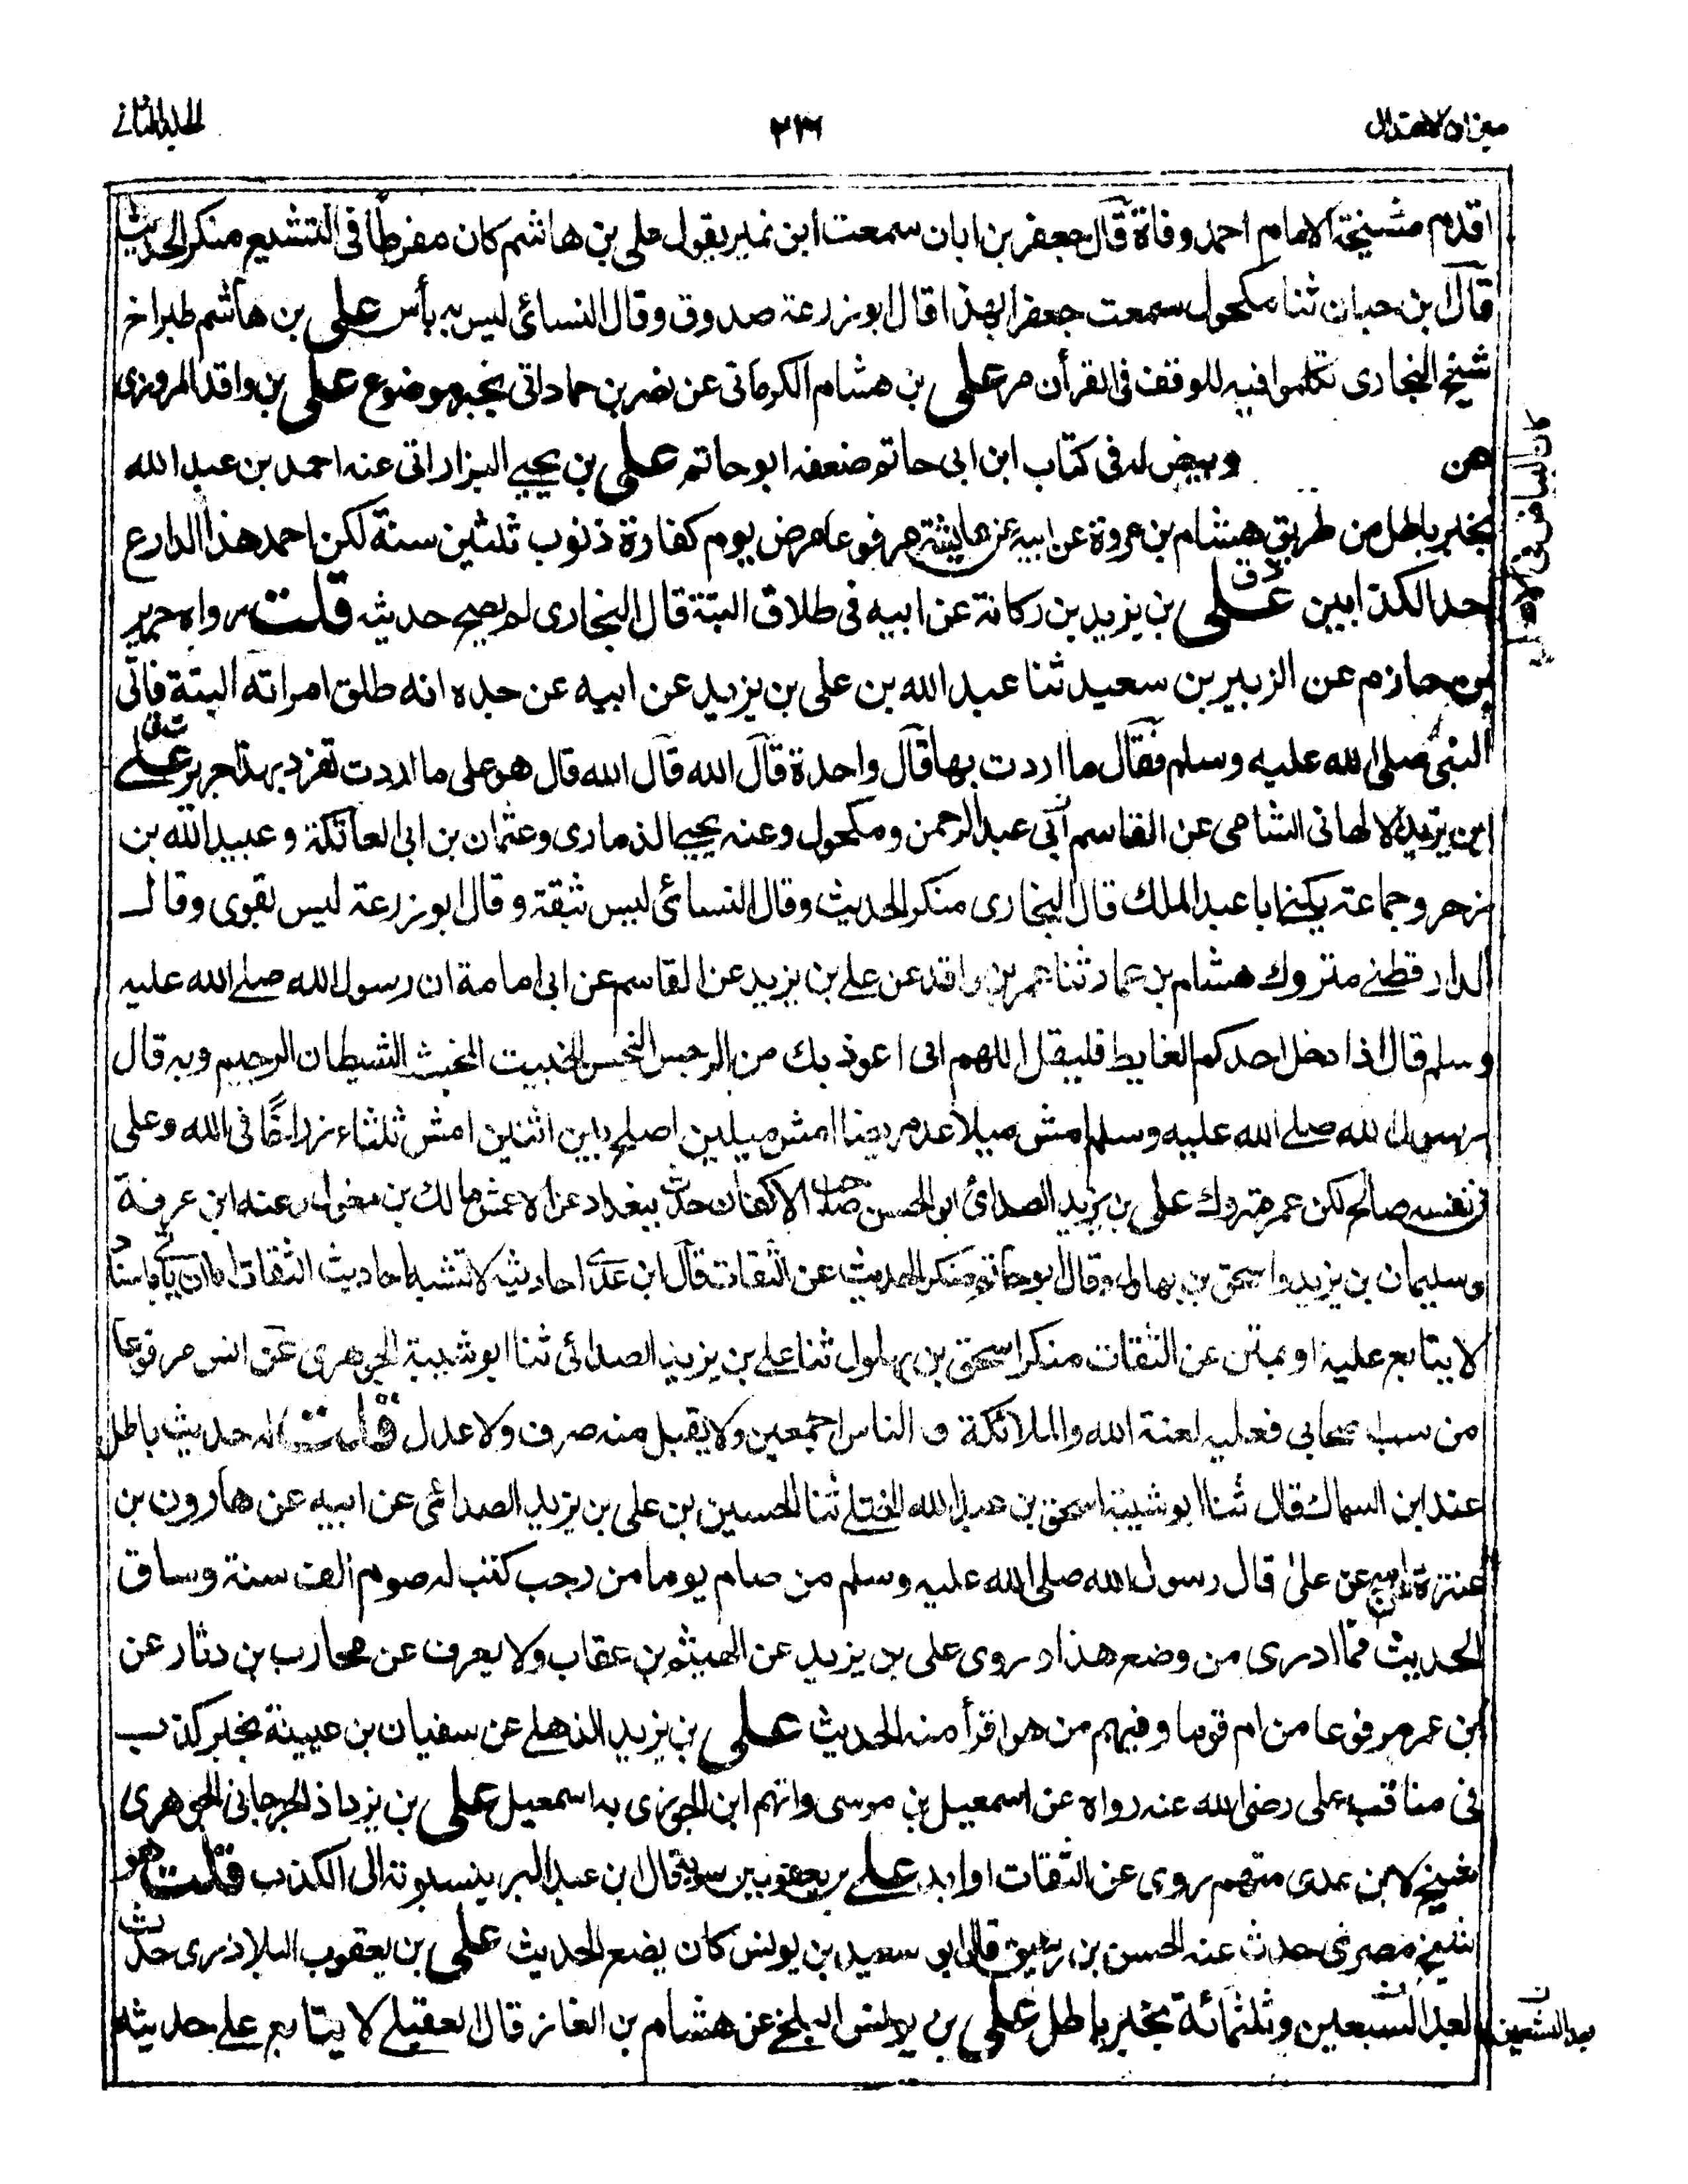 ميزان الاعتدال
٢٣٦
الجلد الثاني
اقدم مشيخة الامام احمد وفاة قال جعفر بن ابان سمعت ابن نمير يقول علي بن هاشم كان مفرطا في التشيع منكر الحديث
قال ابن حبان ثنا مكحول سمعت جعفرا بهذا قال ابو زرعة صدوق وقال النسائي ليس به بأس علي بن هاشم طبراخ
شيخ البخاري تكلموا فيه للوقف في القرأن مر علي بن هشام الكرماني عن نصر بن حماد اتى بخبر موضوع علي بن واقد المروزي
من وبيض له في كتاب ابن ابي حاتم ضعفه ابو حاتم علي بن يحيى البزار اتى عنه احمد بن عبد الله
بخبر باطل من طريق هشام بن عروة عن ابيه عن عايشة مرفوعا مرض يوم كفارة ذنوب ثلثين سنة لكن احمد هذا الدارع
احد الكذابين علي دق بن يزيد بن ركانة عن ابيه في طلاق البتة قال البخاري لم يصح حديثه قلت رواه جرير
بن حازم عن الزبير بن سعيد ثنا عبد الله بن علي بن يزيد عن ابيه عن جده انه طلق امراته البتة فاتى
النبي صلى الله عليه وسلم فقال ما اردت بها قال واحدة قال الله قال الله قال هو على ما اردت تفرد بهذا جرير علي تق
ابن يزيد الالهاني الشامي عن القاسم ابي عبد الرحمن ومكحول وعنه يحيى الذماري وعثمان بن ابي العاتكة وعبيد الله بن
زحر وجماعة يكنى ابا عبد الملك قال البخاري منكر الحديث وقال النسائي ليس بثقة وقال ابو زرعة ليس بقوي وقال
الدارقطني متروك هشام بن عمار ثنا عمر بن واقد عن علي بن يزيد عن القاسم عن ابي امامة ان رسول الله صلى الله عليه
وسلم قال اذا دخل احدكم الغايط فليقل اللهم اني اعوذ بك من الرجس النجس الخبيث المخبث الشيطان الرجيم وبه قال
رسول الله صلى الله عليه وسلم امش ميلا عد مريضا امش ميلين اصلح بين اثنين امش ثلثاء زر اخا في الله وعلي
في نفسه صالح لكن عمر متروك علي بن يزيد الصدائي ابو الحسن صاحب الاكفان حدث ببغداد عن الاعمش مالك بن مغول وعنه ابن عرفة
وسليمان بن يزيد واسحق بن بهلول وقال ابو حاتم منكر الحديث عن الثقات قال ابن عدي احاديثه لا تشبه احاديث الثقات اما ان يأتي باسناد
لا يتابع عليه او بمتن عن الثقات منكر اسحق بن بهلول ثنا علي بن يزيد الصدائي ثنا ابو شيبة الجوهري عن انس مرفوعا
من سب صحابي فعليه لعنة الله والملائكة و الناس اجمعين ولا يقبل منه صرف ولا عدل قلت له حديث باطل
عند ابن السماك قال ثنا ابو شيبة اسحق بن عبد الله الختلي ثنا الحسين بن علي بن يزيد الصدائي عن ابيه عن هارون بن
عنترة عن ابيه عن علي قال رسول الله صلى الله عليه وسلم من صام يوما من رجب كتب له صوم الف سنة وساق
الحديث فما ادري من وضع هذا وروى علي بن يزيد عن الهيثم بن عقاب ولا يعرف عن محارب بن دثار عن
ابن عمر مرفوعا من ام قوما وفيهم من هو اقرأ منه الحديث علي بن يزيد الذهلي عن سفيان بن عيينة بخبر كذب
في مناقب علي رضى الله عنه رواه عن اسمعيل بن موسى واتهم ابن الجوزي به اسمعيل علي بن يزداذ الجرجاني الجوهري
شيخ لابن عدي متهم روى عن الثقات اوابد علي بن يعقوب بن سويد قال ابن عبد البر ينسبونه الى الكذب قلت هو
شيخ مصري حدث عنه الحسن بن رشيق قال ابو سعيد بن يونس كان يضع الحديث علي بن يعقوب البلاذري حدث
بعد السبعين وثلثمائة بخبر باطل علي بن يونس البلخي عن هشام بن الغاز قال العقيلي لا يتابع على حديثه
كان بياض في الاصل
بعد التسعين